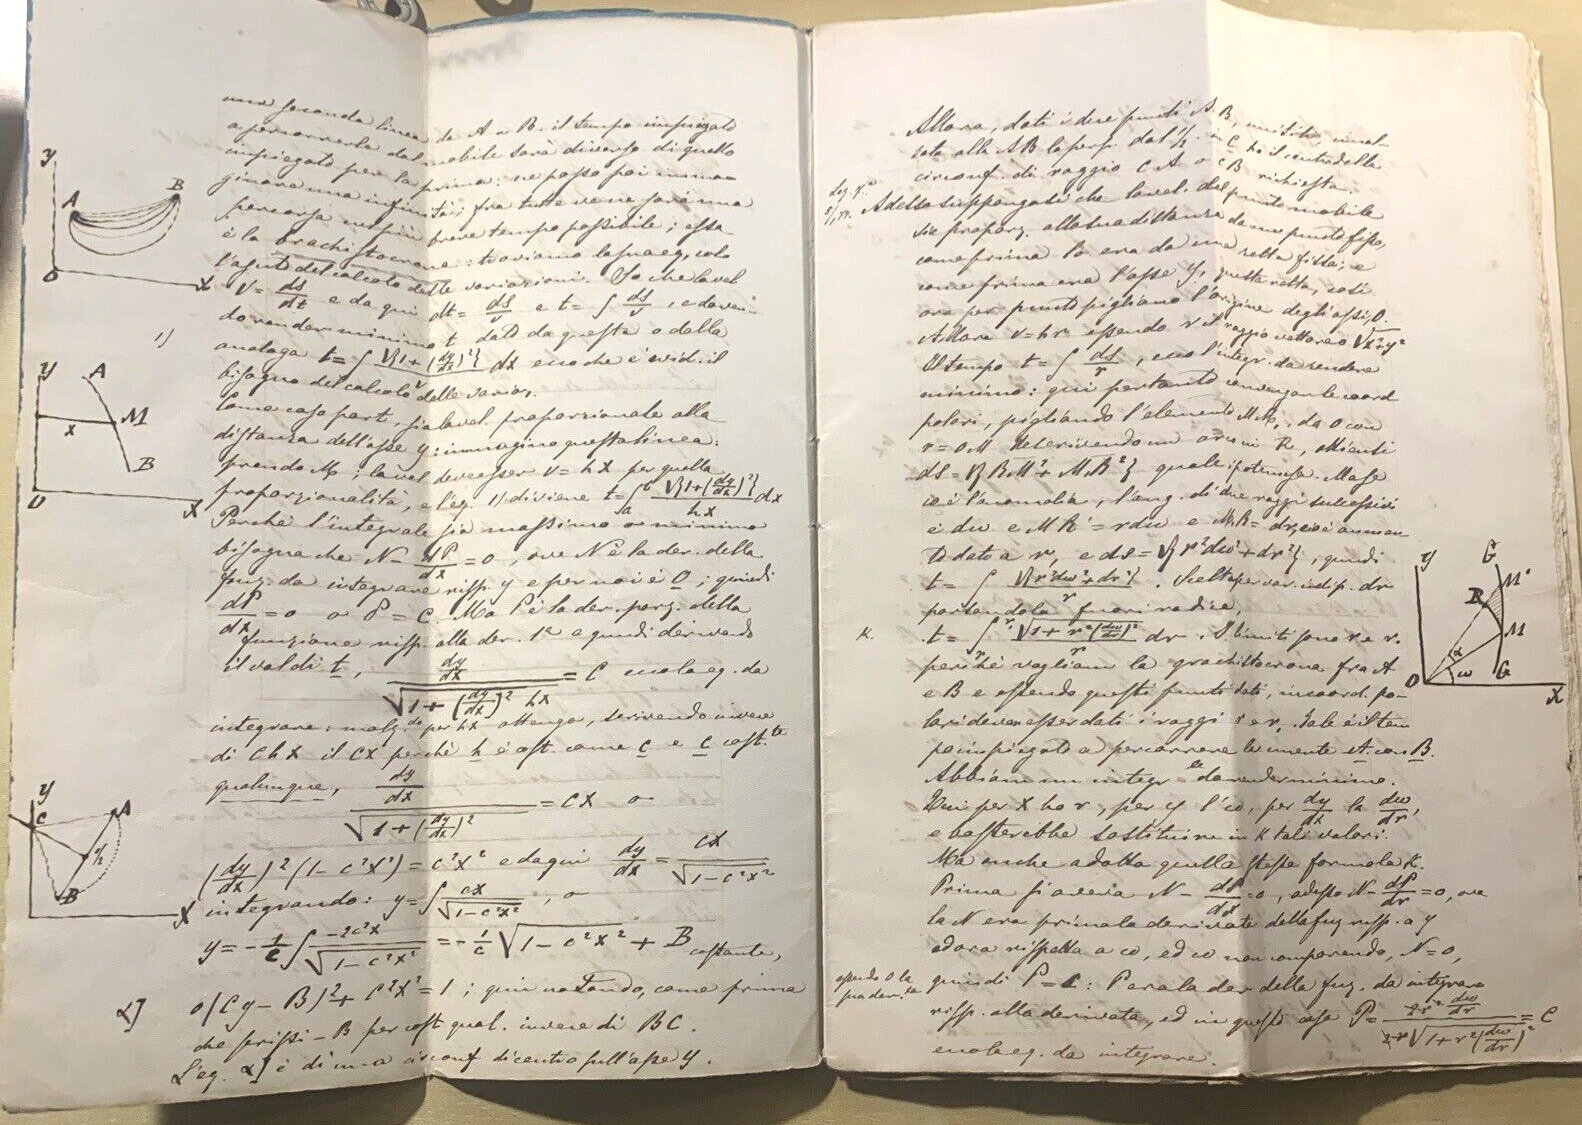 una seconda linea da A a B. il tempo impiegato
a percorrerla dal mobile sarà diverso di quello
impiegato per la prima: ne posso poi imma-
ginare una infinità; fra tutte ve ne sarà una
percorsa nel più breve tempo possibile; essa
è la brachistocrona: troviamo la sua eq. colo
l'ajuto del calcolo delle variazioni. So che la vel
V = ds/dt e da qui dt = ds/v e t = ∫ ds/v, e doven-
do render minimo t dato da questa o dalla
1) analoga t = ∫ √{1+(dy/dx)²}/v dx ecco che è evid. il
bisogno del calcolo delle varioz.
Come caso part. sia la vel. proporzionale alla
distanza dell'asse y: immagino questa linea:
prendo M; la vel. dev'esser v = hx per quella
proporzionalità, e l'eq. 1) diviene t = ∫ₐᵇ √{1+(dy/dx)²}/hx dx
Perchè l'integrale sia massimo o minimo
bisogna che N - dP/dx = 0, ove N è la der. della
funz. da integrare risp. y e per noi è 0; quindi
dP/dx = 0 o P = C. Ma P è la der. parz. della
funzione risp. alla der. 1ª e quindi derivando
il val di t, dy/dx / √1+(dy/dx)² hx = C ecco la eq. da
integrare: molt.do per hx ottengo, scrivendo invece
di Chx il CX perchè h è cost. come C e C cost.te
qualunque, dy/dx / √1+(dy/dx)² = CX o
(dy/dx)² (1-c²x²) = c²x² e da qui dy/dx = cx/√1-c²x²
integrando: y = ∫ cx/√1-c²x², o
y = -1/c ∫ -2c²x/√1-c²x² = -1/c √1-c²x² + B costante,
2] o (Cy - B)² + C²X² = 1; quin notando, come prima
che prissi - B per cost qual. invece di BC.
L'eq. 2] è di una circonf di centro sull'asse y.
y A B O X
y A M x B O X
y C A B X
Allora, dati i due punti A. B, unitili, innal-
sata alla AB la perp. dal ½ in C ho il centro della
circonf. di raggio CA o CB richiesta.
Adesso suppongasi che la vel. del punto mobile
sia proporz. alla sua distanza da un punto fisso,
come prima lo era da una retta fissa; e
come prima era l'asse y, questa retta, così
ora per punto pigliamo l'origine degli assi, O.
Allora v = hr essendo r il raggio vettore o √x²+y²
Il tempo t = ∫ ds/r, ecco l'integr. da rendere
minimo: qui pertanto convengon le coord
polari, pigliando l'elemento MM₁, da O con
r = OM descrivendo un arco in R, ottienti
ds = √{RM² + M₁R²} quale ipotenusa. Ma se
ω è l'anomalia, l'ang. di due raggi successivi
è dω e MR = rdω e M₁R = dr, cioè aumen
to dato a r, e ds = √{r²dω² + dr²}, quindi
t = ∫ √{r²dω²+dr²}/r. Scelta per var. indip. dr
portandola fuori radice,
K. t = ∫ √1+r²(dω/dr)²/r dr. I limiti sono r e r₁
perchè vogliam la brachistocrona fra A
e B e essendo questi punti dati, in coord. po-
lari devon esser dati i raggi r e r₁ Tale è il tem
po impiegato a percorrere la unente A. con B.
Abbiam un integr. da render minimo.
Qui per x ho r, per y l'ω, per dy/dx la dω/dr,
e basterebbe sostituire in K tali valori.
Ma anche adatta quella stessa formola K.
Prima si aveva N - dP/dx = 0, adesso N - dP/dr = 0, ove
la N era prima la derivate della fuz risp. a y
ed ora rispetta a ω, ed ω non comparendo, N = 0,
quindi P = C: P era la der della fuz. da integrare
risp. alla derivata, ed in questo caso P = 2r² dω/dr / 2r√1+r²(dω/dr)² = C
ecco la eq. da integrare.
essendo 0 la
sua der.ta
y G M' R M α ω G O X